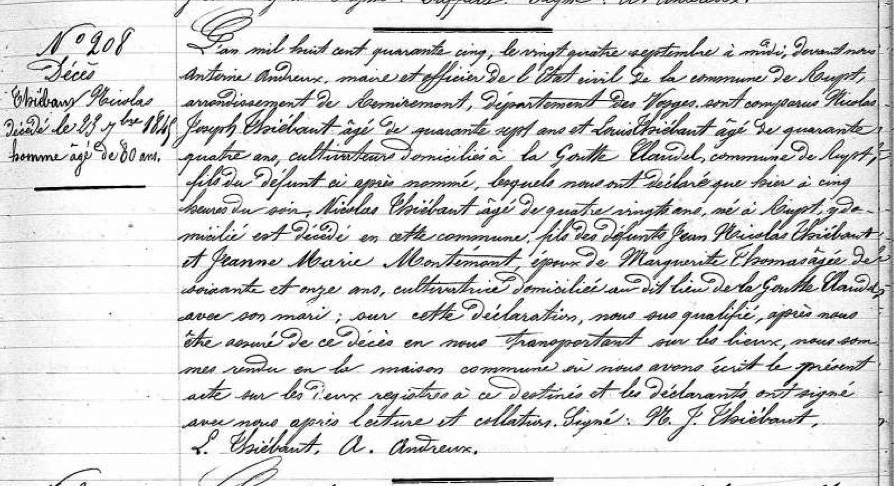 N° 208
Décès
Thiébaut Nicolas
décédé le 23 7bre 1845
homme âgé de 80 ans.
L'an mil huit cent quarante cinq, le vingt quatre septembre à midi, devant nous
Antoine Andreux, maire et officier de l'Etat civil de la commune de Rupt,
arrondissement de Remiremont, département des Vosges. sont comparus Nicolas
Joseph Thiébaut âgé de quarante sept ans et Louis Thiébaut âgé de quarante
quatre ans, cultivateurs domiciliés à la Goutte Claudel, commune de Rupt,
fils du défunt ci après nommé, lesquels nous ont déclaré que hier à cinq
heures du soir, Nicolas Thiébaut âgé de quatre vingts ans, né à Rupt, y do-
micilié est décédé en cette commune, fils des défunts Jean Nicolas Thiébaut
et Jeanne Marie Montémont, époux de Marguerite Thomas âgée de
soixante et onze ans, cultivatrice domiciliée au dit lieu de la Goutte Claudel
avec son mari ; sur cette déclaration, nous sus qualifié, après nous
être assuré de ce décès en nous transportant sur les lieux, nous som-
mes rendu en la maison commune où nous avons écrit le présent
acte sur les deux registres à ce destinés et les déclarants ont signé
avec nous après lecture et collation. Signé : N. J. Thiébaut,
L. Thiébaut, A. Andreux.